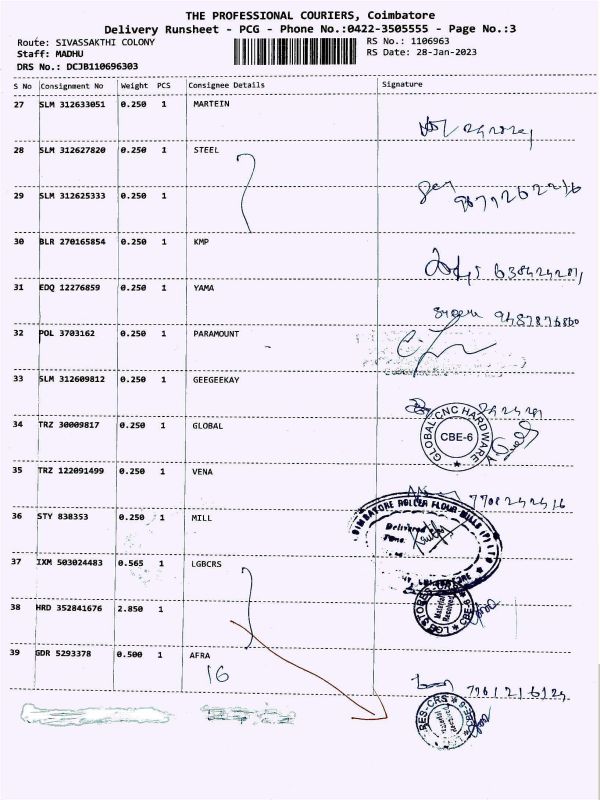 THE PROFESSIONAL COURIERS, Coimbatore
Delivery Runsheet - PCG - Phone No.:0422-3505555 - Page No.:3
Route: SIVASSAKTHI COLONY RS No.: 1106963
Staff: MADHU RS Date: 28-Jan-2023
DRS No.: DCJB110696303
S No Consignment No Weight PCS Consignee Details Signature
27 SLM 312633051 0.250 1 MARTEIN
28 SLM 312627820 0.250 1 STEEL
29 SLM 312625333 0.250 1
30 BLR 270165854 0.250 1 KMP
31 EDQ 12276859 0.250 1 YAMA
32 POL 3703162 0.250 1 PARAMOUNT
33 SLM 312609812 0.250 1 GEEGEEKAY
34 TRZ 30009817 0.250 1 GLOBAL
GLOBAL CNC HARDWARE
CBE-6
35 TRZ 122091499 0.250 1 VENA
36 STY 838353 0.250 1 MILL
COIMBATORE ROLLER FLOUR MILLS (P) LTD
Delivered
37 IXM 503024483 0.565 1 LGBCRS
38 HRD 352841676 2.850 1
LGB STORES-CRS
Material Received
CBE-6
39 GDR 5293378 0.500 1 AFRA
16